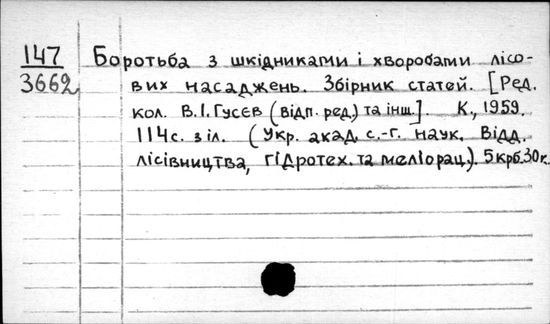 147 Боротьба з шкідниками і хворобами лісо-
3662 вих насаджень. Збірник статей. [Ред.
кол. В.І. Гусєв (відп. ред.) та інш.]. К., 1959.
114 с. з іл. (Укр. акад. с.-г. наук. Відд.
лісівництва, гідротех. та меліорац.). 5 крб. 30 к.